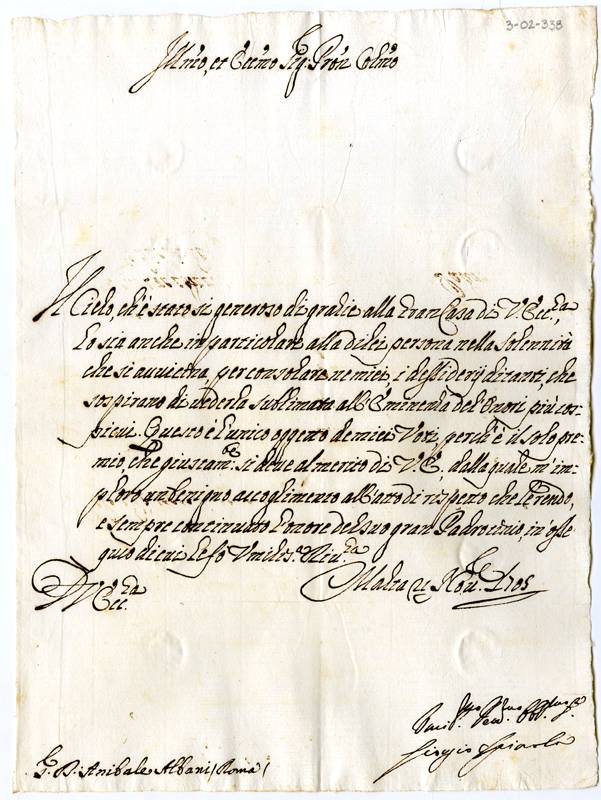 3-02-338
Illmo, et Eccmo Sig:r Prõn Colmo
Il Cielo, ch'è stato si generoso di gratie alla Gran Casa di V. Ecc.za,
lo sia anche in particolare alla di lei persona nella solennità
che si avvicina, per consolare ne miei i dessiderij di tanti, che
sospirano di vederla sublimata all'Eminenza del Onori più cos-
picui. Questo è l'unico oggetto de miei Voti, perch'è il solo pre-
mio, che giustam:e si deve al merito di V. E., dalla quale m'im-
ploro un benigno accoglimento all'atto di rispetto che le rendo,
e sempre continuato l'onore del suo gran Padrocinio, in osse
quio di cui le fo Umiliss.a Riv.za
D V. Ecc.za Malta Nov.e 1705
Serv.
Giorgio Spinola
S. D. Anibale Albani (Roma)